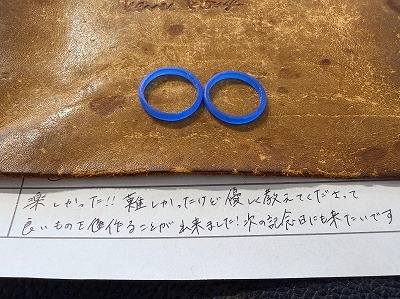 楽しかった!! 難しかったけど優しく教えてくださって
良いものを作ることが出来ました! 次の記念日にも来たいです